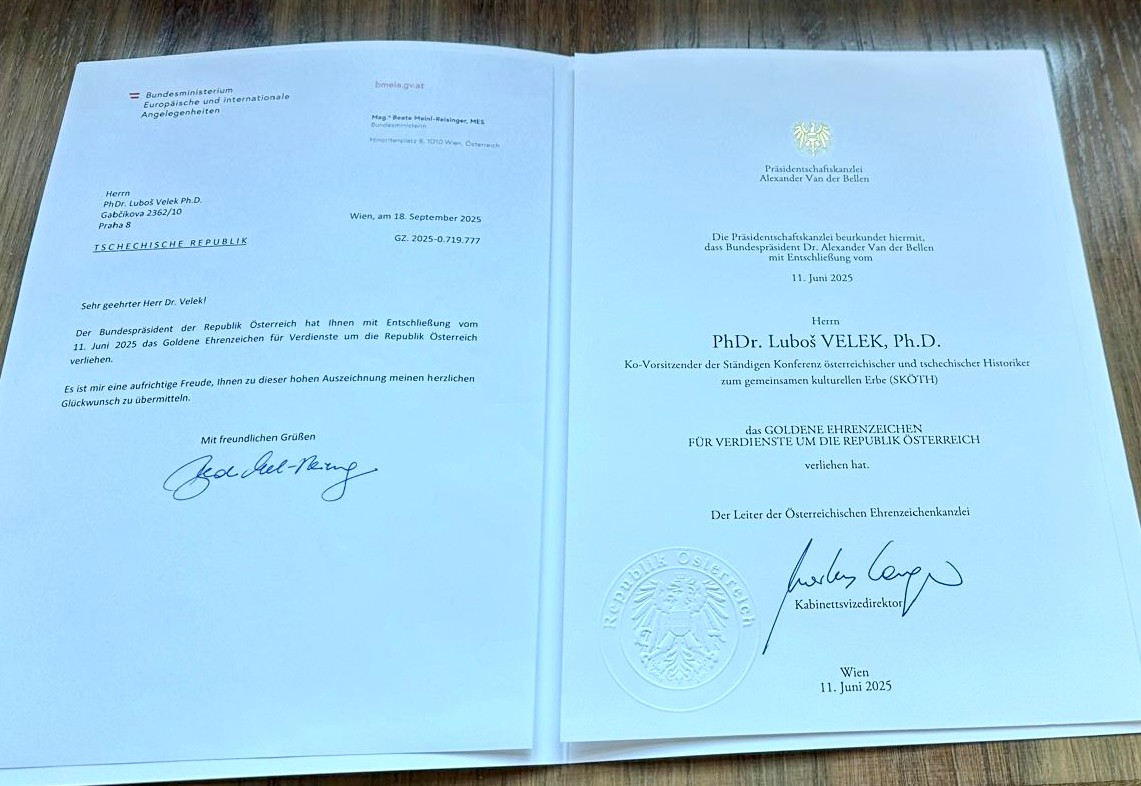 Bundesministerium
Europäische und internationale
Angelegenheiten
bmeia.gv.at
Mag.ª Beate Meinl-Reisinger, MES
Bundesministerin
Minoritenplatz 8, 1010 Wien, Österreich
Herrn
PhDr. Luboš Velek Ph.D.
Gabčíkova 2362/10
Praha 8
TSCHECHISCHE REPUBLIK
Wien, am 18. September 2025
GZ. 2025-0.719.777
Sehr geehrter Herr Dr. Velek!
Der Bundespräsident der Republik Österreich hat Ihnen mit Entschließung vom
11. Juni 2025 das Goldene Ehrenzeichen für Verdienste um die Republik Österreich
verliehen.
Es ist mir eine aufrichtige Freude, Ihnen zu dieser hohen Auszeichnung meinen herzlichen
Glückwunsch zu übermitteln.
Mit freundlichen Grüßen
Präsidentschaftskanzlei
Alexander Van der Bellen
Die Präsidentschaftskanzlei beurkundet hiermit,
dass Bundespräsident Dr. Alexander Van der Bellen
mit Entschließung vom
11. Juni 2025
Herrn
PhDr. Luboš VELEK, Ph.D.
Ko-Vorsitzender der Ständigen Konferenz österreichischer und tschechischer Historiker
zum gemeinsamen kulturellen Erbe (SKÖTH)
das GOLDENE EHRENZEICHEN
FÜR VERDIENSTE UM DIE REPUBLIK ÖSTERREICH
verliehen hat.
Der Leiter der Österreichischen Ehrenzeichenkanzlei
Republik Österreich
Kabinettsvizedirektor
Wien
11. Juni 2025